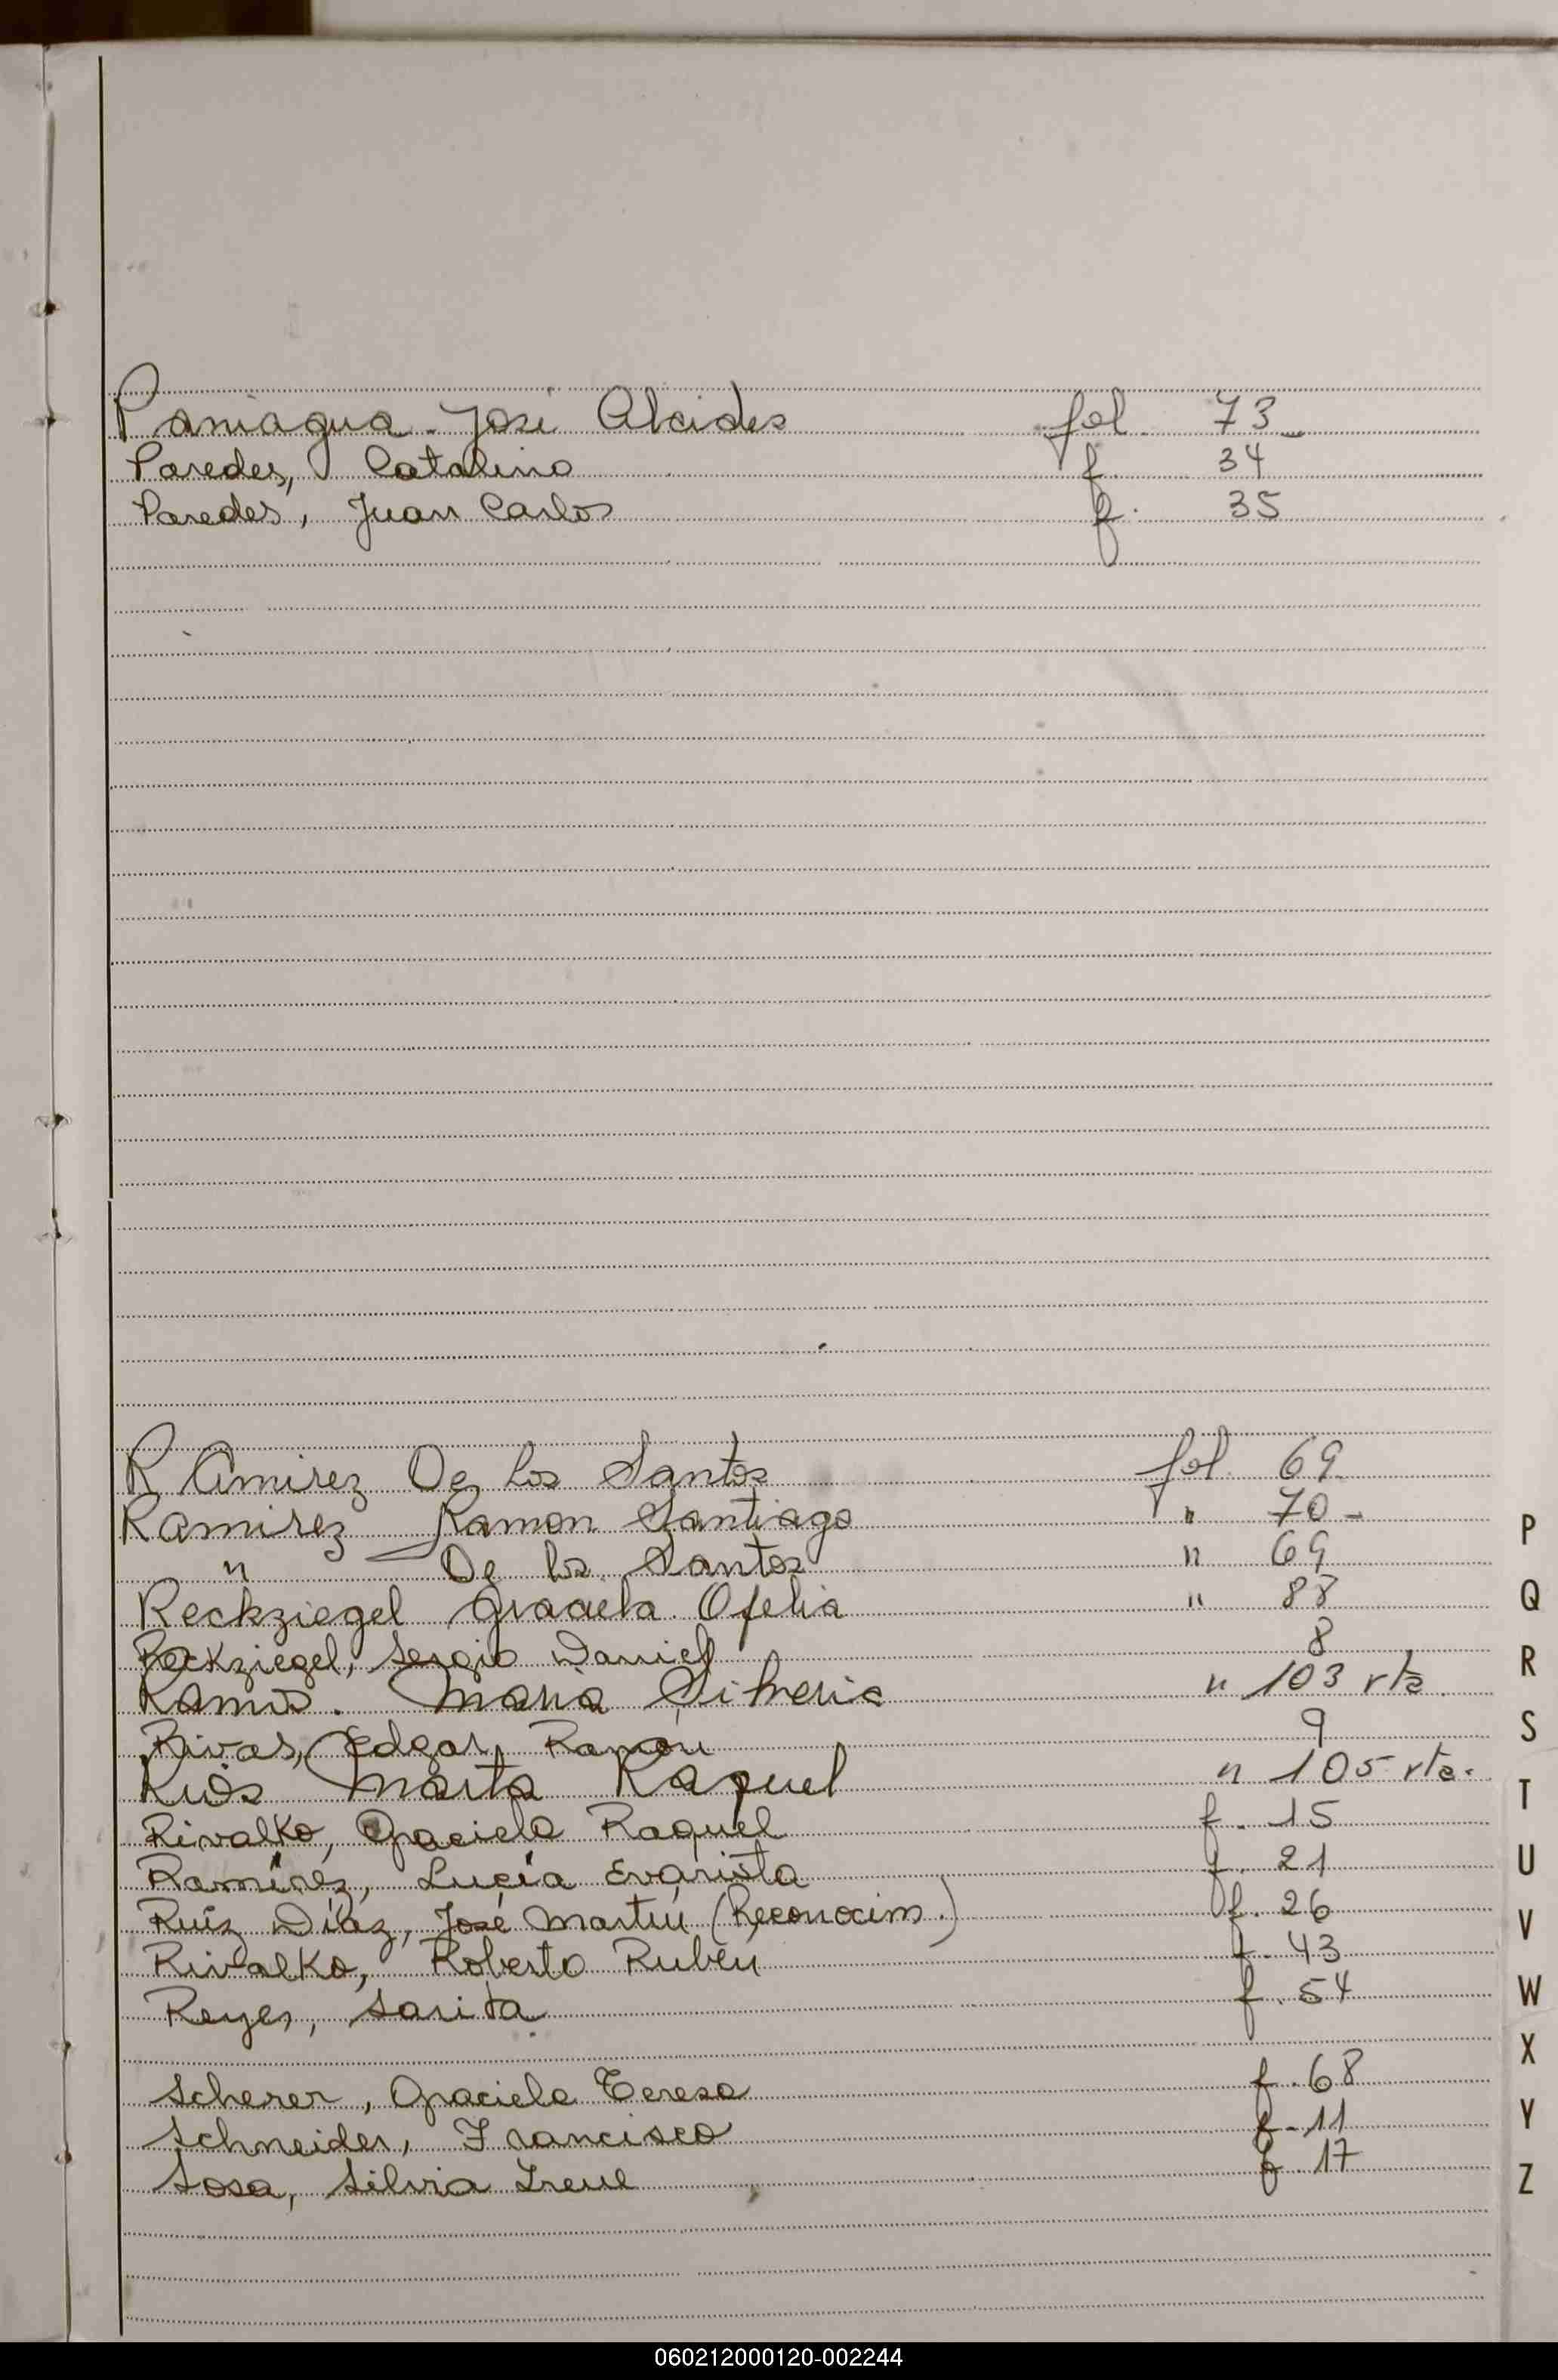 Paniagua José Alcides fol. 73
Paredes, Catalino f. 34
Paredes, Juan Carlos f. 35
RAmirez De los Santos fol. 69
Ramirez Ramon Santiago " 70
" De los Santos " 69
Reckziegel Graciela Ofelia " 88
Reckziegel, Sergio Daniel 8
Ramos. Maria Silveria " 103 vta.
Rivas, Edgar Ramón 9
Marta Raquel " 105 vta.
Rivalko, Graciela Raquel f. 15
Ramírez, Lucía Evarista f. 21
Ruíz Díaz, José Martín (Reconocim.) f. 26
Rivalko, Roberto Rubén f. 43
Reyes, Sarita f. 54
Scherer, Graciela Teresa f. 68
Schneider, Francisco f. 11
Sosa, Silvia Irene f. 17
P
Q
R
S
T
U
V
W
X
Y
Z
060212000120-002244